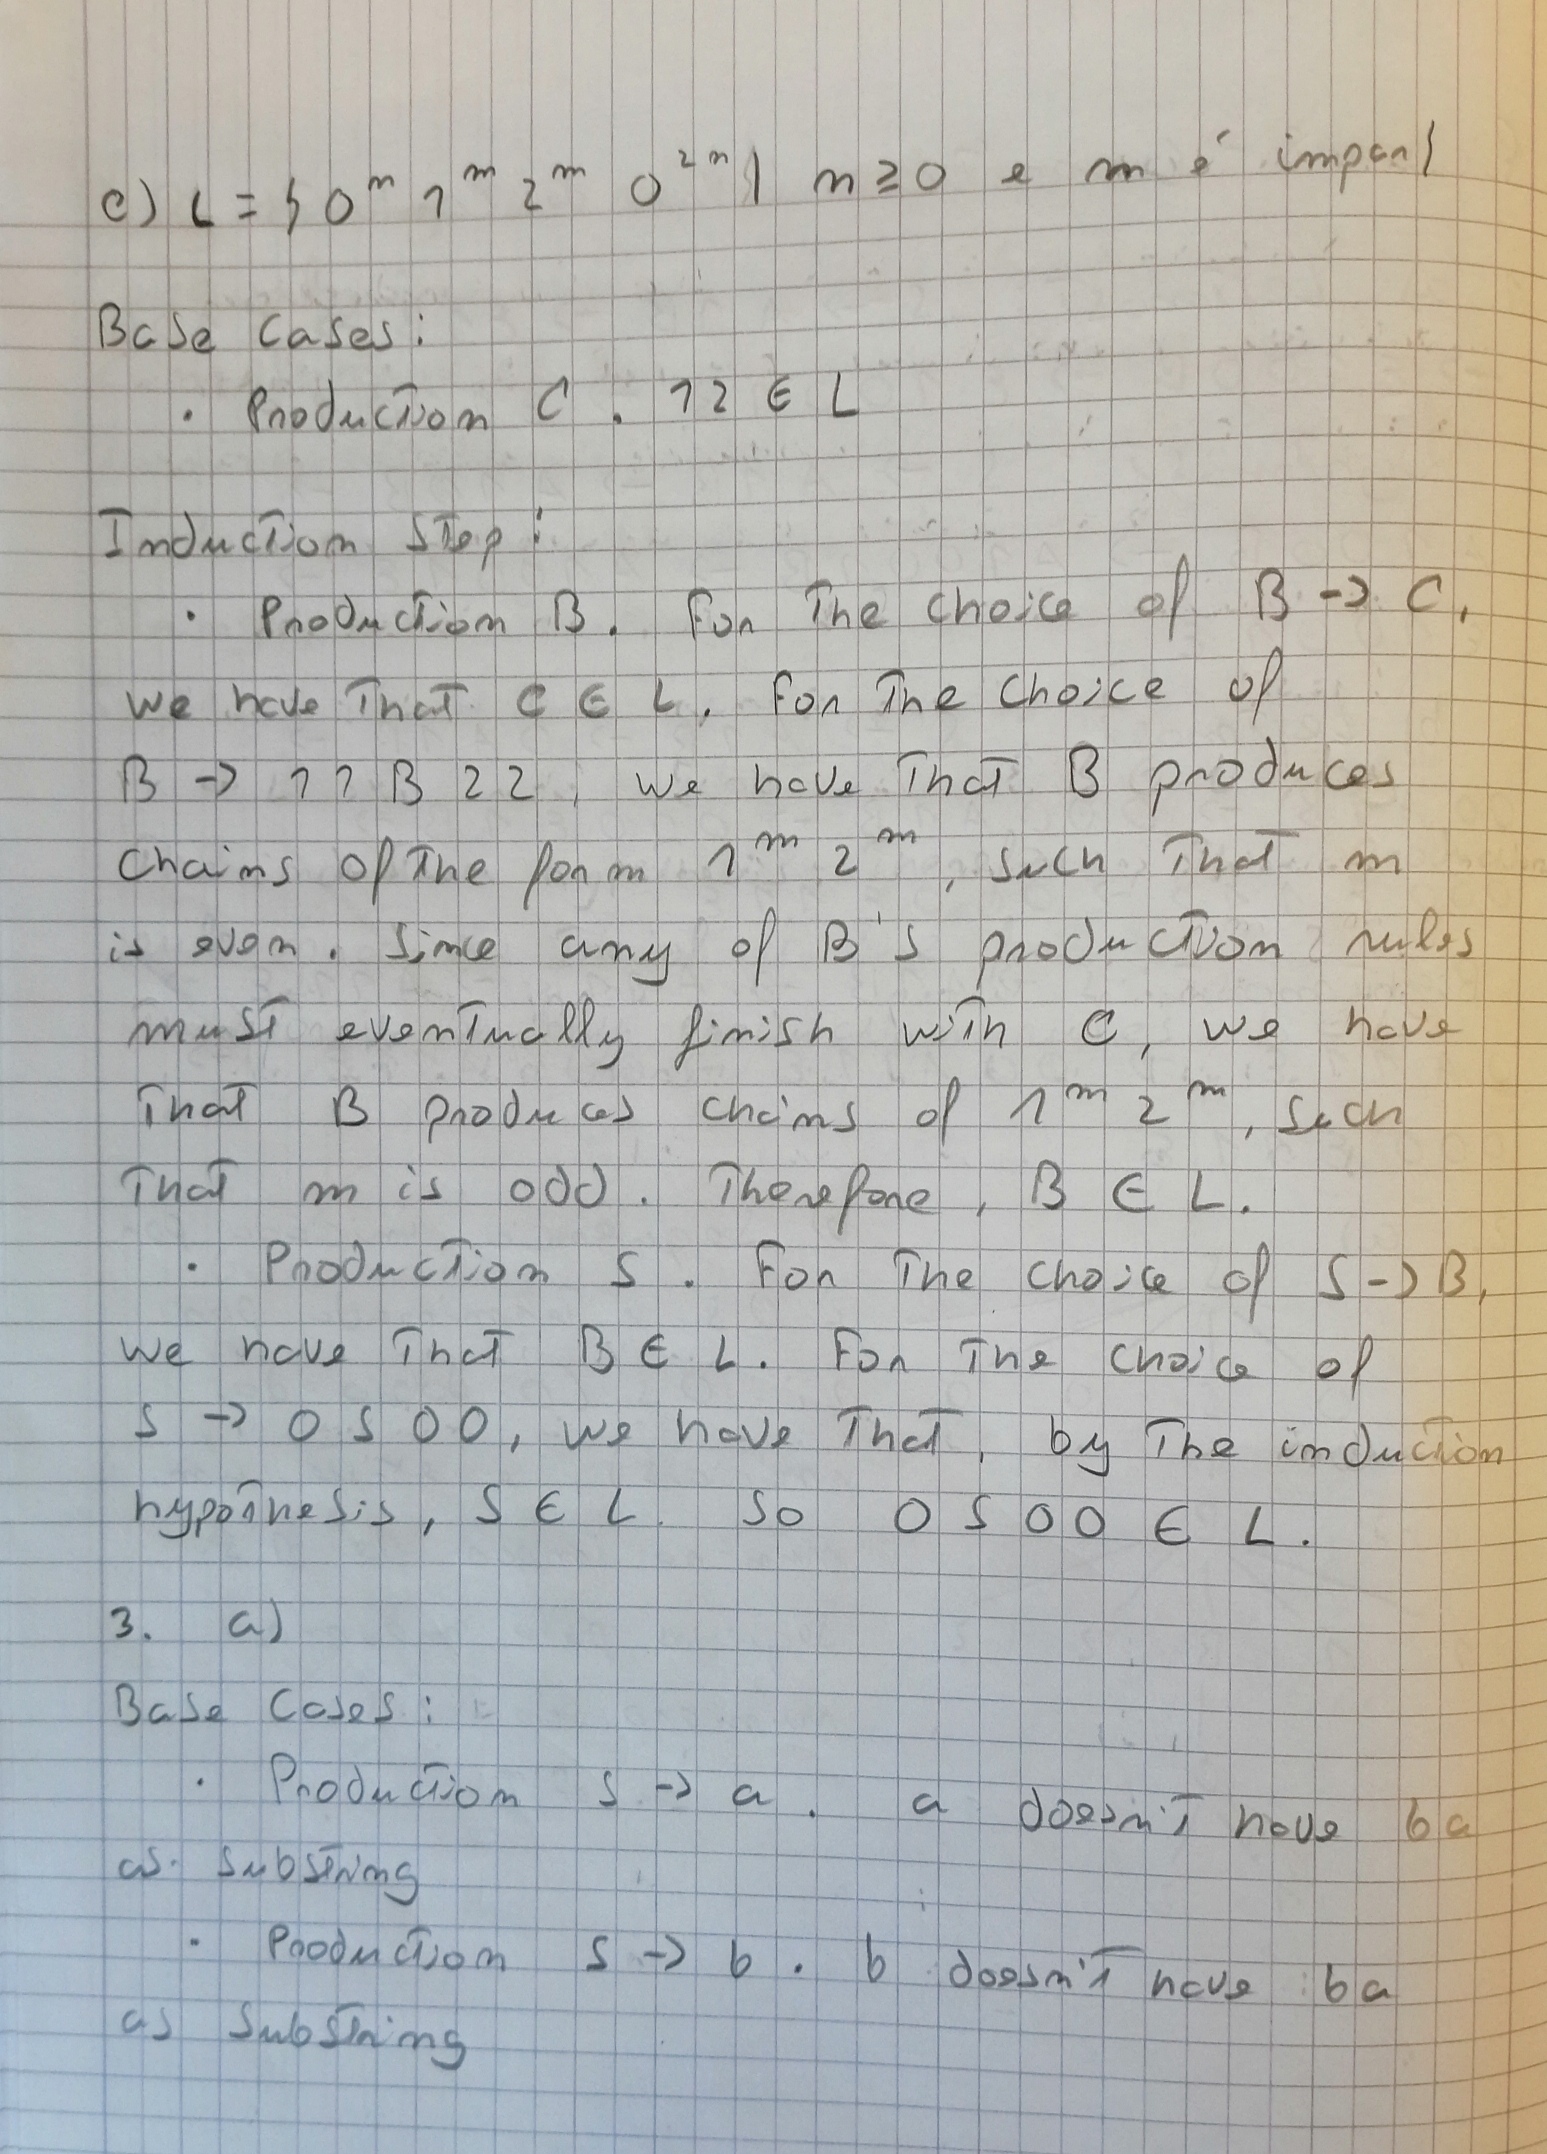 c) L = { 0ⁿ 1ᵐ 2ᵐ 0²ⁿ | n ≥ 0 e m é impar}
Base Cases:
· Production C. 12 ∈ L
Induction Step:
· Production B. For the choice of B -> C,
we have that C ∈ L. For the choice of
B -> 11B22, we have that B produces
chains of the form 1ᵐ 2ᵐ, such that m
is even. Since any of B's production rules
must eventually finish with C, we have
that B produces chains of 1ᵐ 2ᵐ, such
that m is odd. Therefore, B ∈ L.
· Production S. For the choice of S -> B,
we have that B ∈ L. For the choice of
S -> 0S00, we have that, by the induction
hypothesis, S ∈ L. So 0S00 ∈ L.
3. a)
Base Cases:
· Production S -> a. a doesn't have ba
as substring
· Production S -> b. b doesn't have ba
as substring